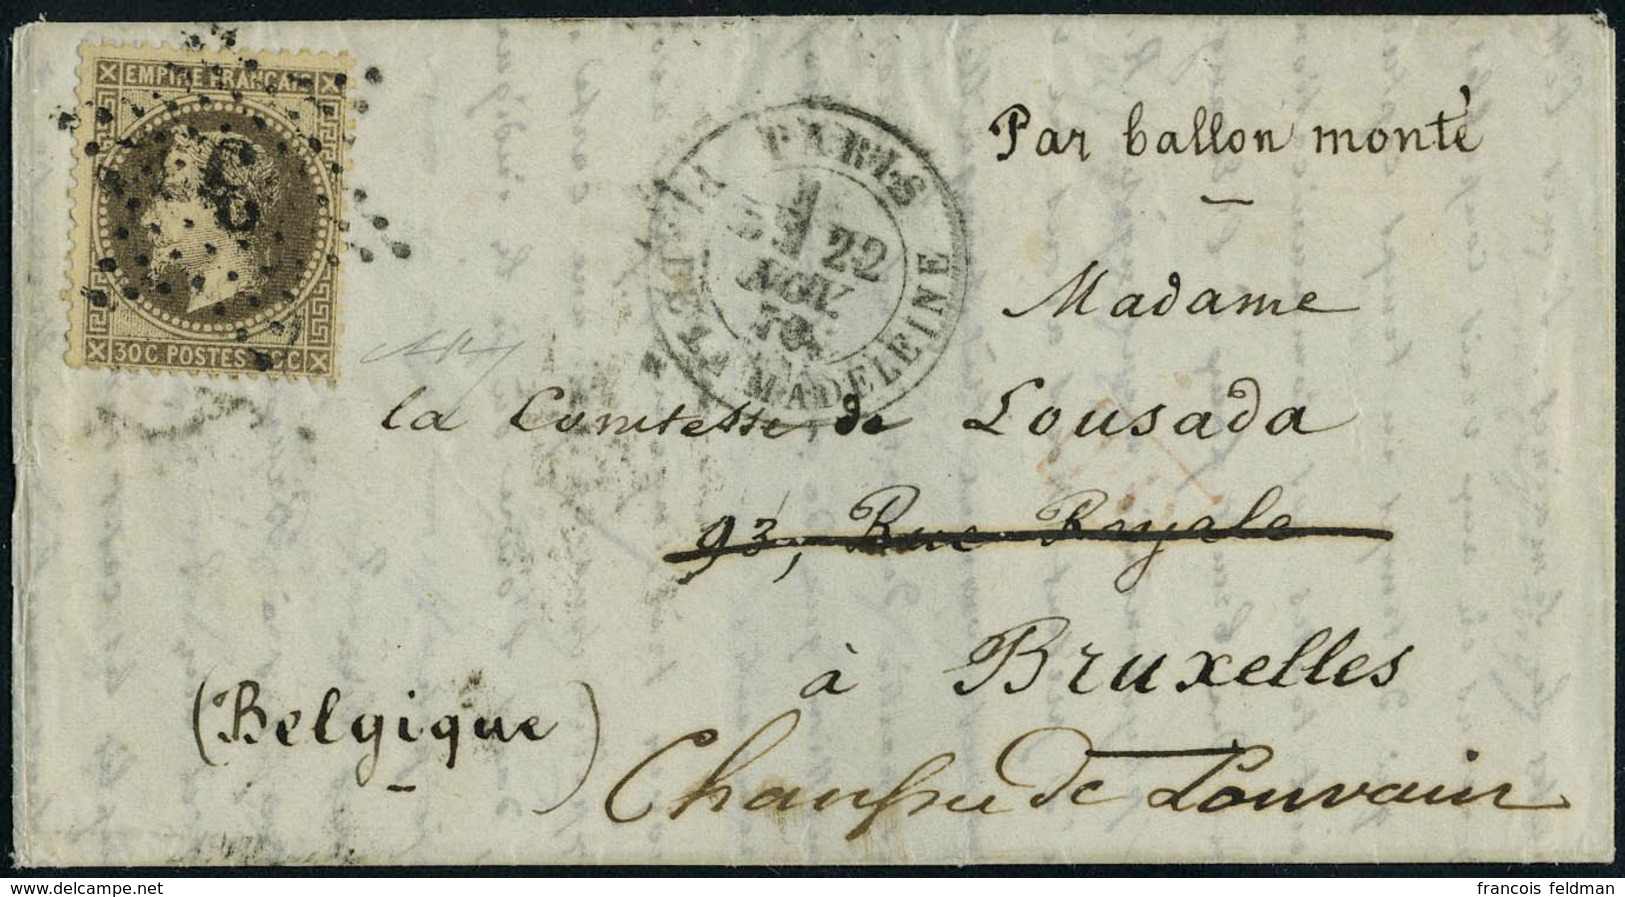 EMPIRE FRANÇAIS
30C POSTES 30C
3
PARIS
22
NOV
70
PL. DE LA MADELEINE
Par ballon monté
Madame
la Comtesse de Lousada
93, Rue Royale
à Bruxelles
(Belgique)
Chaussée de Louvain
francois feldman